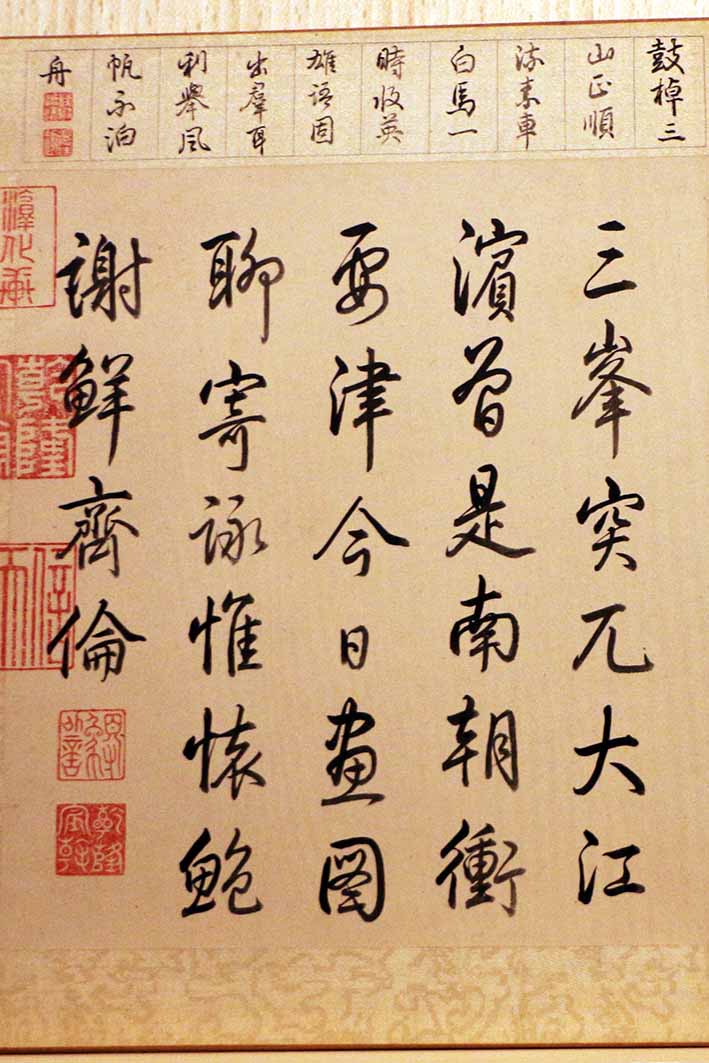 鼓棹三
山正順
流素車
白馬一
時收英
雄語固
出羣耳
利舉風
帆不泊
舟
三峯突兀大江
濱曾是南朝衝
要津今日畫圖
聊寄詠惟懷鮑
謝鮮齊倫
淳化軒
乾隆宸翰